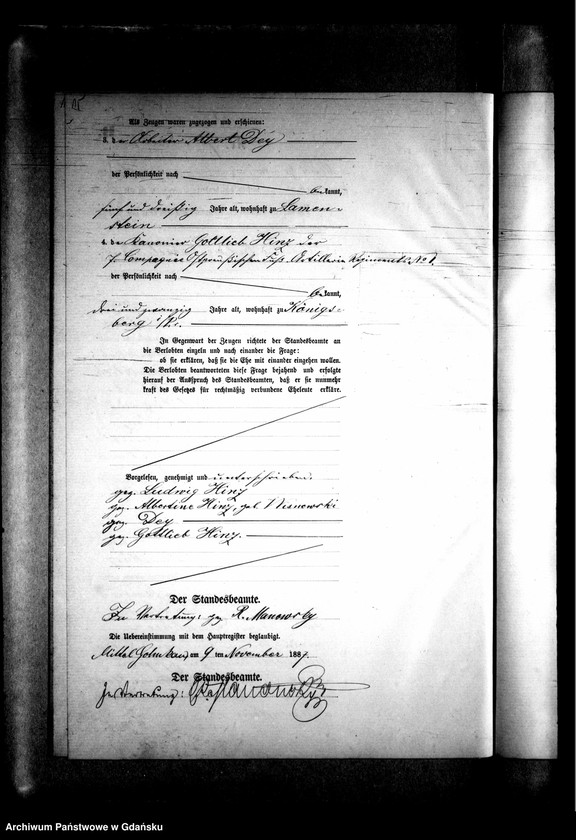 Als Zeugen waren zugezogen und erschienen:
3. der Arbeiter Albert Dey
der Persönlichkeit nach
bekannt,
fünf und dreißig Jahre alt, wohnhaft zu Lamen-
stein
4. der Kanonier Gottlieb Hinz der
7. Compagnie Ostpreußischen Fuß-Artillerie Regiments No 1.
der Persönlichkeit nach
bekannt,
drei und zwanzig Jahre alt, wohnhaft zu Königs-
berg i/Pr.
In Gegenwart der Zeugen richtete der Standesbeamte an
die Verlobten einzeln und nach einander die Frage:
ob sie erklären, daß sie die Ehe mit einander eingehen wollen.
Die Verlobten beantworteten diese Frage bejahend und erfolgte
hierauf der Ausspruch des Standesbeamten, daß er sie nunmehr
kraft des Gesetzes für rechtmäßig verbundene Eheleute erkläre.
Vorgelesen, genehmigt und unterschrieben
gez. Ludwig Hinz
gez. Albertine Hinz, geb. Wisnewski
gez. Dey
gez. Gottlieb Hinz.
Der Standesbeamte.
In Vertretung: gez R. Manowsky
Die Uebereinstimmung mit dem Hauptregister beglaubigt.
Mittel Golmkau am 9 ten November 1887.
Der Standesbeamte.
In Vertretung:
Archiwum Państwowe w Gdańsku